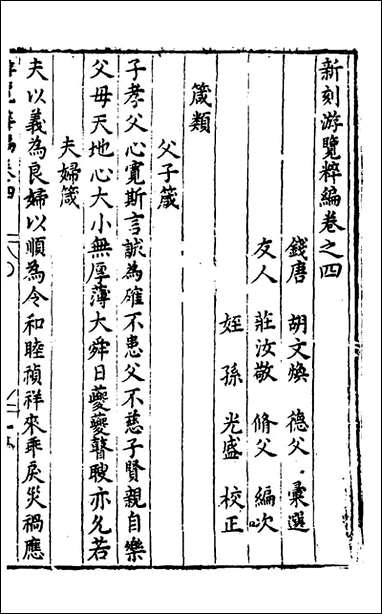 新刻游覽粹編卷之四
錢唐 胡文煥 德父 彙選
友人 莊汝敬 脩父 編次
姪孫 光盛 校正
箴類
父子箴
子孝父心寬斯言誠為確不患父不慈子賢親自樂
父母天地心大小無厚薄大舜日夔夔瞽瞍亦允若
夫婦箴
夫以義為良婦以順為令和睦禎祥來乖戾災禍應